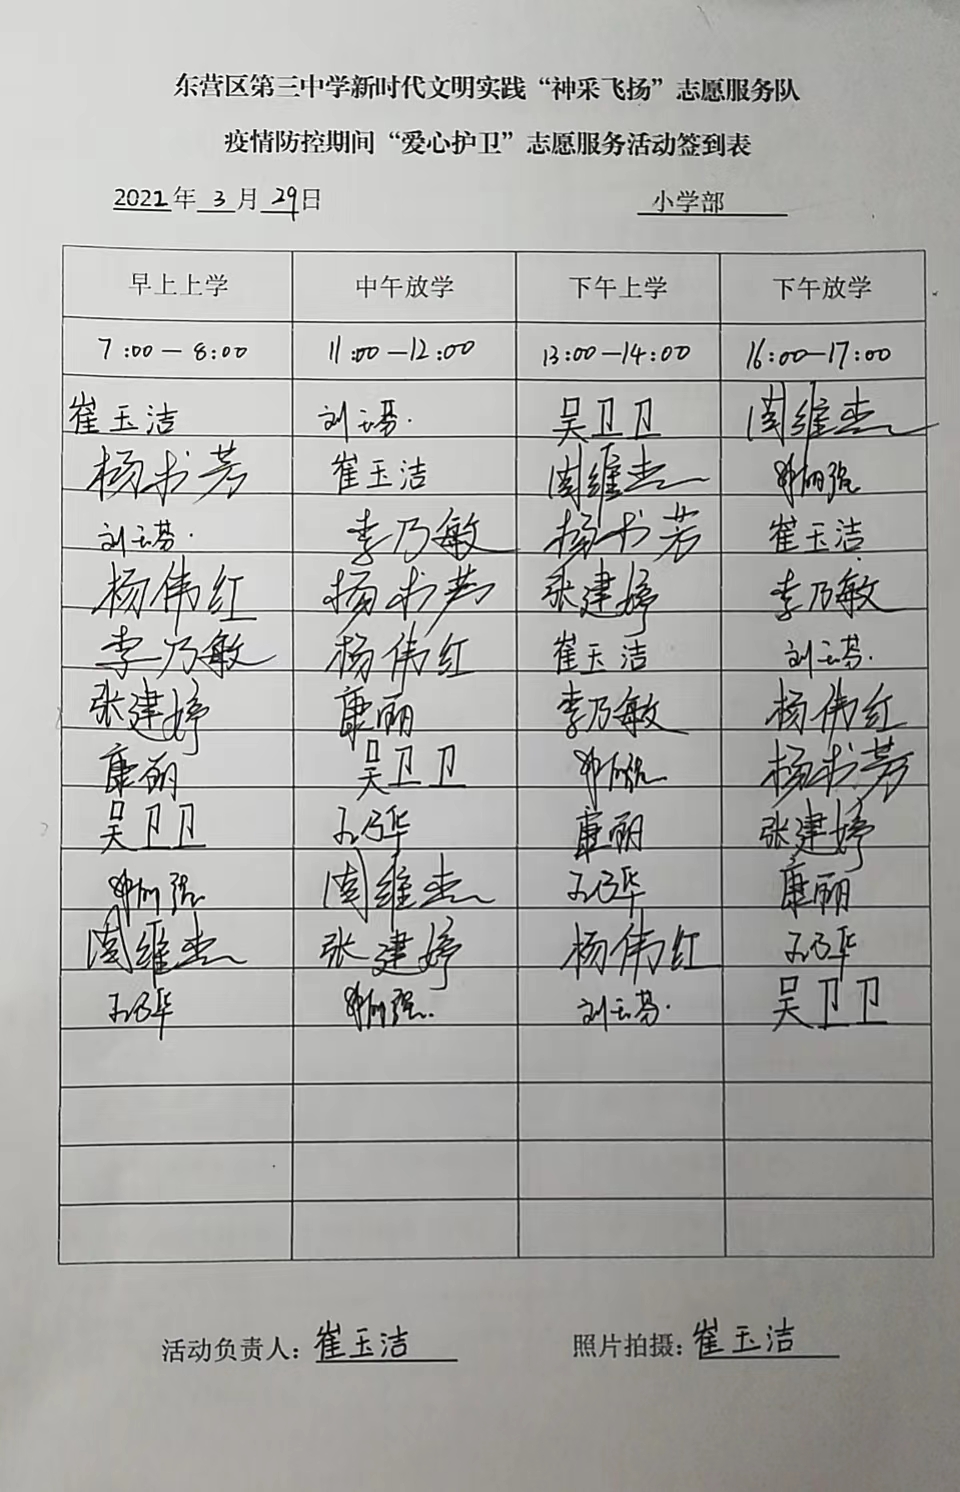 东营区第三中学新时代文明实践“神采飞扬”志愿服务队
疫情防控期间“爱心护卫”志愿服务活动签到表
2022年 3 月 29日 小学部
早上上学 中午放学 下午上学 下午放学
7:00—8:00 11:00—12:00 13:00—14:00 16:00—17:00
崔玉洁 刘云芬. 吴卫卫 周维杰
杨书芳 崔玉洁 周维杰
刘云芬. 李乃敏 杨书芳 崔玉洁
杨伟红 杨书芳 张建婷 李乃敏
李乃敏 杨伟红 崔玉洁 刘云芬.
张建婷 康丽 李乃敏 杨伟红
康丽 吴卫卫 杨书芳
吴卫卫 孙乃华 康丽 张建婷
周维杰 孙乃华 康丽
周维杰 张建婷 杨伟红 孙乃华
孙乃华 刘云芬. 吴卫卫
活动负责人：崔玉洁 照片拍摄：崔玉洁